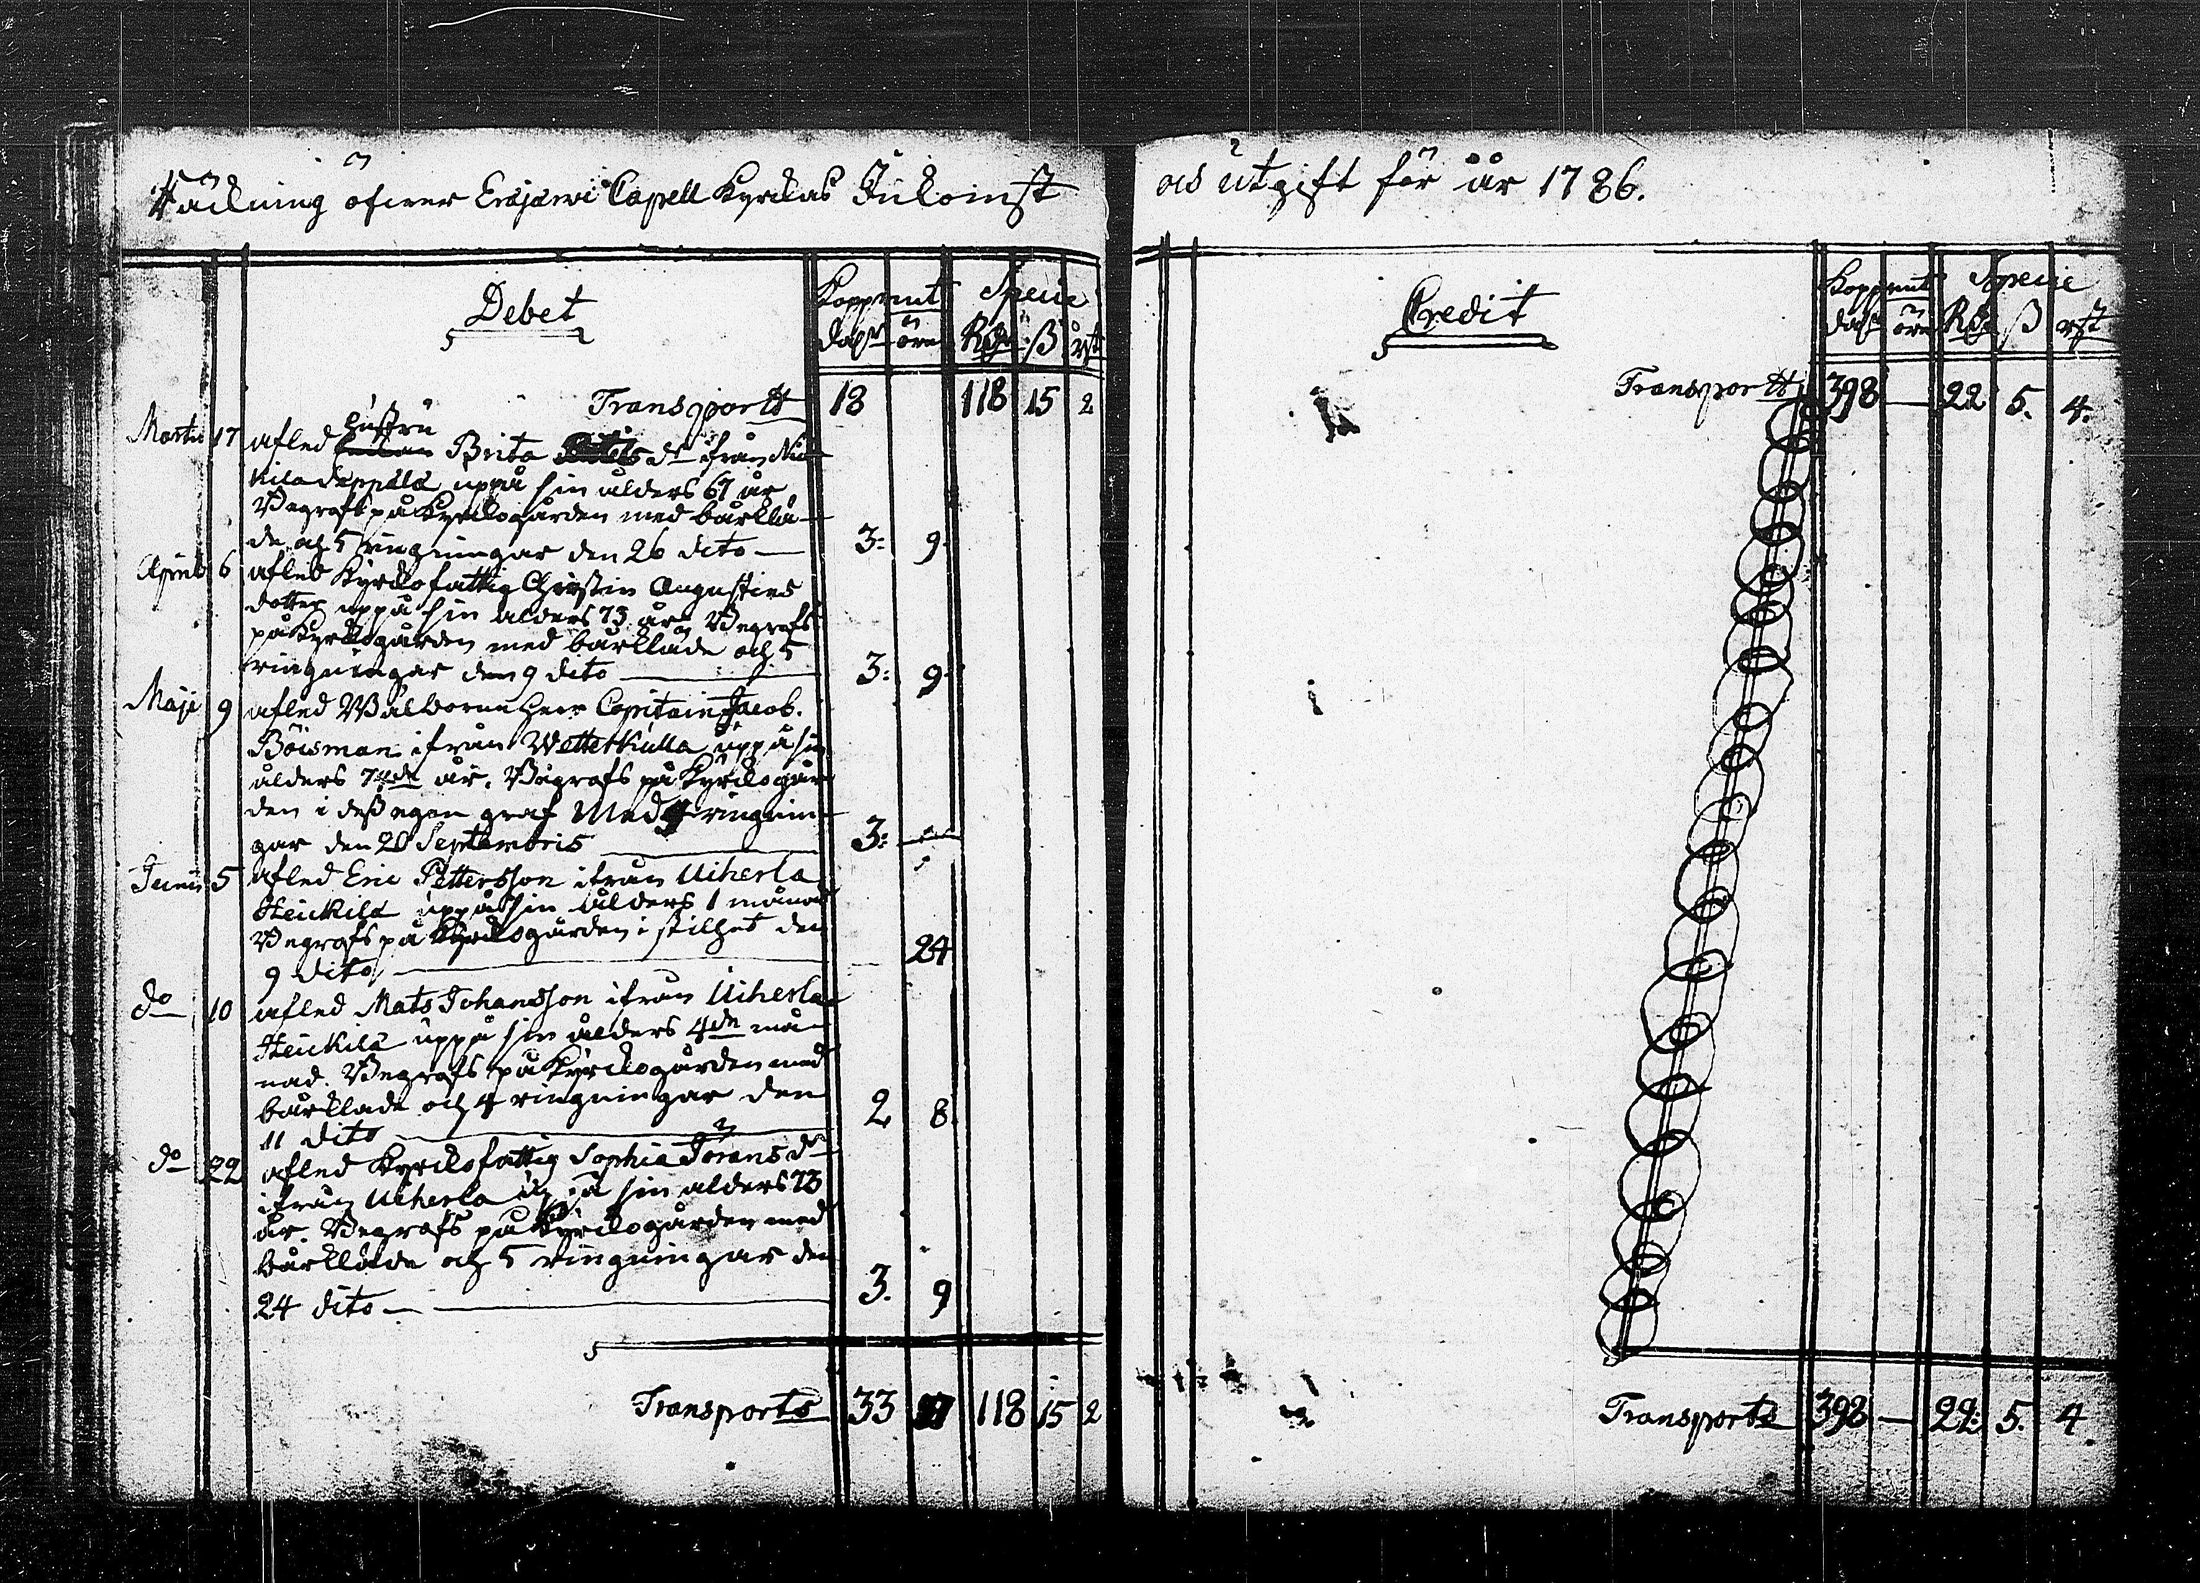 Räckning öfwer Eräjärvi Capell Kyrckas Inkomst
och utgift för år 1786.
Debet
Koppmt Specie
dahlr öre Rdr ß rst
Transportt 18 118 15 2
hustru
Martii 17 afled Brita dr ifrån
Seppälä uppå sin ålders 67 år
Begrafs på Kyrckogården med bårklä-
de och 5 ringningar den 26 dito — 3: 9.
Aprill 6 afled Kyrckofattig Christin Augustins
dotter uppå sin ålders 73 år Begrafs
på Kyrckogården med bårkläde och 5
ringningar den 9 dito — 3: 9.
Maji 9 afled Wälborne Herr Capitain Jacob
Böisman ifrån Wetterkulla uppå sin
ålders 74de år. Begrafs på Kyrckogår
den i dess egen graf Med 4 ringnin-
gar den 20 Septembris — 3: —
Junii 5 afled Eric Pettersson ifrån Uiherla
Heickilä uppå sin ålders 1 månad
Begrafs på Kyrckogården i stilhet den
9 dito — 24
do 10 afled Mats Johansson ifrån Uiherla
Heickilä uppå sin ålders 4de må-
nad. Begrafs på Kyrckogården med
bårkläde och 4 ringningar den
11 dito — 2 8.
do 22 afled Kyrckofattig Sophia Jörans dr
ifrån Uiherla uppå sin ålders 73
år. Begrafs på Kyrckogården med
bårkläde och 5 ringningar den
24 dito — 3. 9
Transporte 33 118 15 2
Credit
Koppmt Specie
dahlr öre Rdr ß rst
Transportt 398 — 22 5. 4.
Transporte 398 — 22: 5. 4.